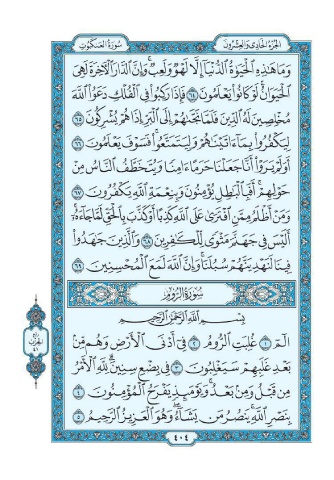 سُورَةُ العَنكَبُوتِ
الجُزْءُ الحَادِي وَالعِشْرُونَ
وَمَا هَٰذِهِ ٱلْحَيَوٰةُ ٱلدُّنْيَآ إِلَّا لَهْوٌ وَلَعِبٌ ۚ وَإِنَّ ٱلدَّارَ ٱلْأَخِرَةَ لَهِىَ
ٱلْحَيَوَانُ ۚ لَوْ كَانُوا۟ يَعْلَمُونَ ٦٤ فَإِذَا رَكِبُوا۟ فِى ٱلْفُلْكِ دَعَوُا۟ ٱللَّهَ
مُخْلِصِينَ لَهُ ٱلدِّينَ فَلَمَّا نَجَّىٰهُمْ إِلَى ٱلْبَرِّ إِذَا هُمْ يُشْرِكُونَ ٦٥
لِيَكْفُرُوا۟ بِمَآ ءَاتَيْنَٰهُمْ وَلِيَتَمَتَّعُوا۟ ۖ فَسَوْفَ يَعْلَمُونَ ٦٦
أَوَلَمْ يَرَوْا۟ أَنَّا جَعَلْنَا حَرَمًا ءَامِنًا وَيُتَخَطَّفُ ٱلنَّاسُ مِنْ
حَوْلِهِمْ ۚ أَفَبِٱلْبَٰطِلِ يُؤْمِنُونَ وَبِنِعْمَةِ ٱللَّهِ يَكْفُرُونَ ٦٧
وَمَنْ أَظْلَمُ مِمَّنِ ٱفْتَرَىٰ عَلَى ٱللَّهِ كَذِبًا أَوْ كَذَّبَ بِٱلْحَقِّ لَمَّا جَآءَهُۥٓ ۚ
أَلَيْسَ فِى جَهَنَّمَ مَثْوًى لِّلْكَٰفِرِينَ ٦٨ وَٱلَّذِينَ جَٰهَدُوا۟
فِينَا لَنَهْدِيَنَّهُمْ سُبُلَنَا ۚ وَإِنَّ ٱللَّهَ لَمَعَ ٱلْمُحْسِنِينَ ٦٩
سُورَةُ الرُّومِ
بِسْمِ ٱللَّهِ ٱلرَّحْمَٰنِ ٱلرَّحِيمِ
الٓمٓ ١ غُلِبَتِ ٱلرُّومُ ٢ فِىٓ أَدْنَى ٱلْأَرْضِ وَهُم مِّنۢ
بَعْدِ غَلَبِهِمْ سَيَغْلِبُونَ ٣ فِى بِضْعِ سِنِينَ ۗ لِلَّهِ ٱلْأَمْرُ
مِن قَبْلُ وَمِنۢ بَعْدُ ۚ وَيَوْمَئِذٍ يَفْرَحُ ٱلْمُؤْمِنُونَ ٤
بِنَصْرِ ٱللَّهِ ۚ يَنصُرُ مَن يَشَآءُ ۖ وَهُوَ ٱلْعَزِيزُ ٱلرَّحِيمُ ٥
ربع
الحزب
٤١
٤٠٤